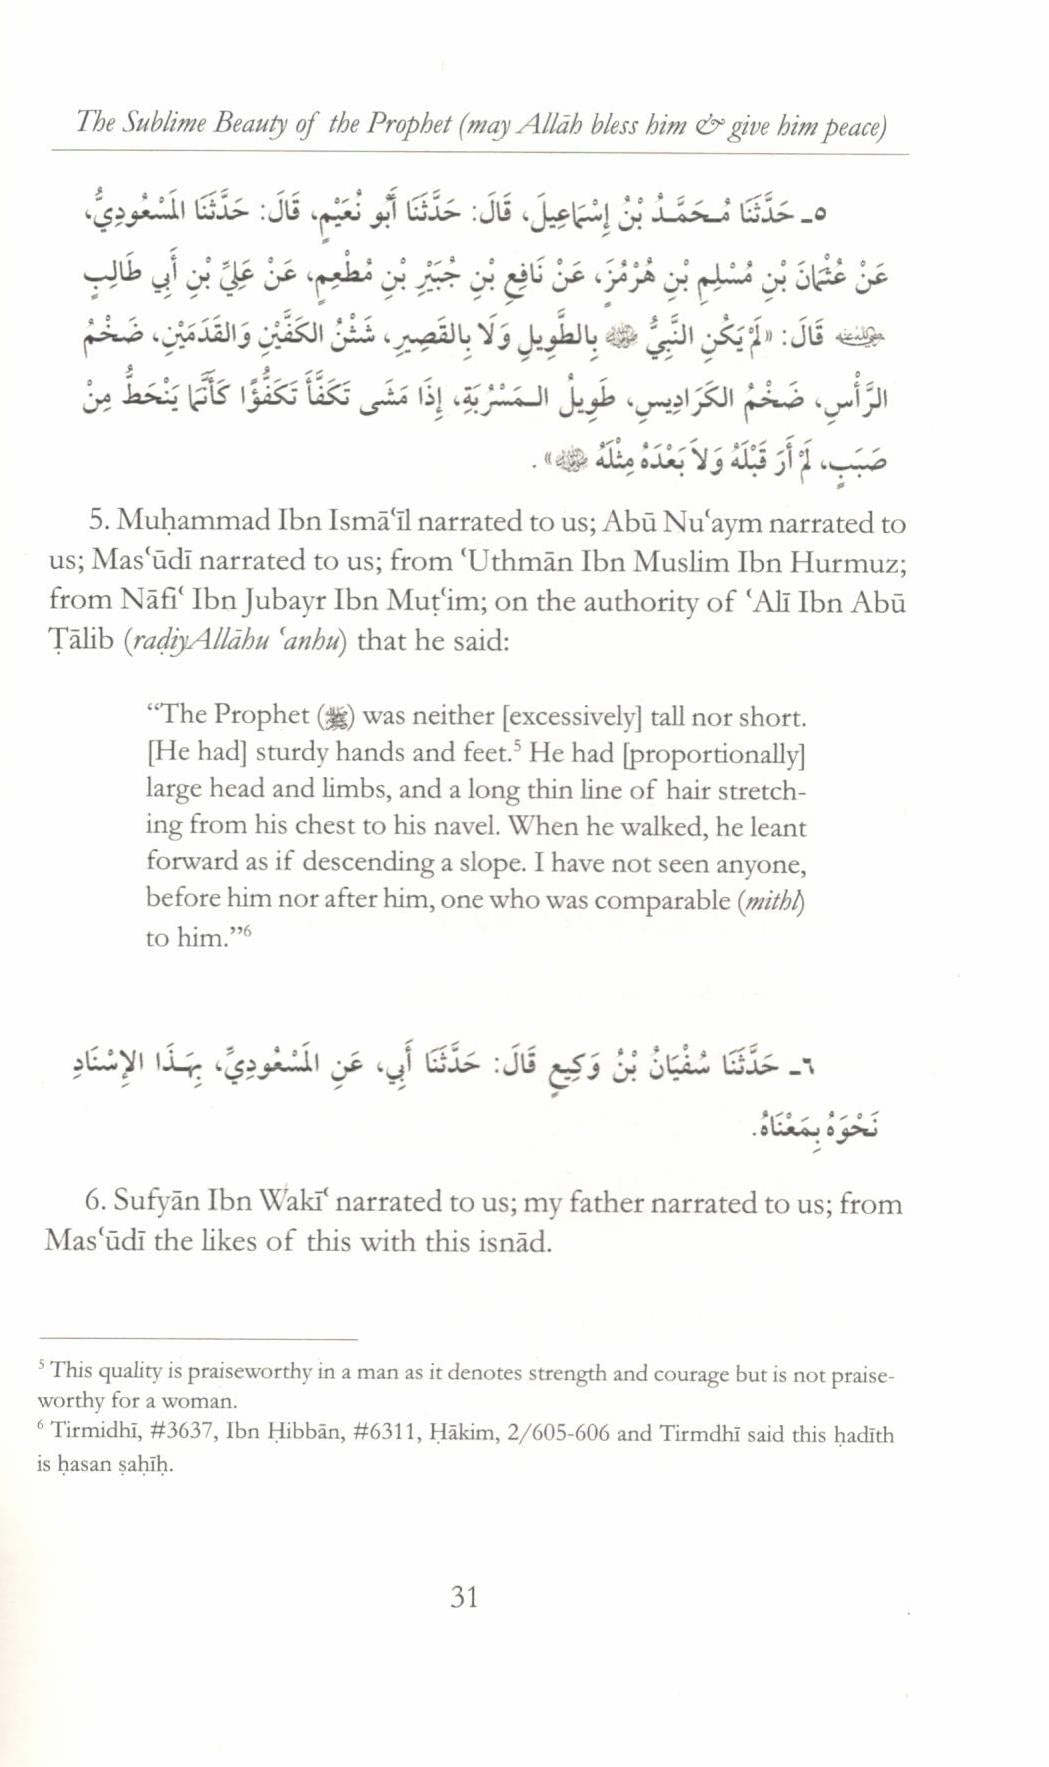 The Sublime Beauty of the Prophet (may Allāh bless him & give him peace)
٥ـ حَدَّثَنَا مُحَمَّدُ بْنُ إِسْمَاعِيلَ، قَالَ: حَدَّثَنَا أَبُو نُعَيْمٍ، قَالَ: حَدَّثَنَا المَسْعُودِيُّ،
عَنْ عُثْمَانَ بْنِ مُسْلِمِ بْنِ هُرْمُزَ، عَنْ نَافِعِ بْنِ جُبَيْرِ بْنِ مُطْعِمٍ، عَنْ عَلِيِّ بْنِ أَبِي طَالِبٍ
رضي الله عنه قَالَ: «لَمْ يَكُنِ النَّبِيُّ ﷺ بِالطَّوِيلِ وَلَا بِالقَصِيرِ، شَثْنُ الكَفَّيْنِ وَالقَدَمَيْنِ، ضَخْمُ
الرَّأْسِ، ضَخْمُ الكَرَادِيسِ، طَوِيلُ الـمَسْرُبَةِ، إِذَا مَشَى تَكَفَّأَ تَكَفُّؤًا كَأَنَّمَا يَنْحَطُّ مِنْ
صَبَبٍ، لَمْ أَرَ قَبْلَهُ وَلاَ بَعْدَهُ مِثْلَهُ ﷺ».
5. Muḥammad Ibn Ismāʿīl narrated to us; Abū Nuʿaym narrated to
us; Masʿūdī narrated to us; from ʿUthmān Ibn Muslim Ibn Hurmuz;
from Nāfiʿ Ibn Jubayr Ibn Muṭʿim; on the authority of ʿAlī Ibn Abū
Ṭālib (raḍiyAllāhu ʿanhu) that he said:
“The Prophet (ﷺ) was neither [excessively] tall nor short.
[He had] sturdy hands and feet.⁵ He had [proportionally]
large head and limbs, and a long thin line of hair stretch-
ing from his chest to his navel. When he walked, he leant
forward as if descending a slope. I have not seen anyone,
before him nor after him, one who was comparable (mithl)
to him.”⁶
٦ـ حَدَّثَنَا سُفْيَانُ بْنُ وَكِيعٍ قَالَ: حَدَّثَنَا أَبِي، عَنِ المَسْعُودِيِّ، بِهَذَا الإِسْنَادِ
نَحْوَهُ بِمَعْنَاهُ.
6. Sufyān Ibn Wakīʿ narrated to us; my father narrated to us; from
Masʿūdī the likes of this with this isnād.
⁵ This quality is praiseworthy in a man as it denotes strength and courage but is not praise-
worthy for a woman.
⁶ Tirmidhī, #3637, Ibn Ḥibbān, #6311, Ḥākim, 2/605-606 and Tirmdhī said this ḥadīth
is ḥasan ṣaḥīḥ.
31